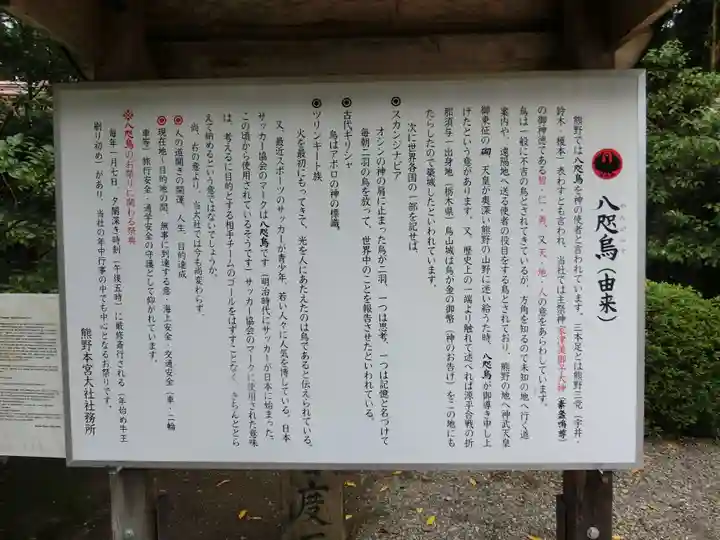 八咫烏(由来)
熊野では八咫烏を神の使者と言われています。三本足とは熊野三党(宇井・
鈴木・榎本)表わすとも言われ、当社では主祭神家津美御子大神(素盞鳴尊)
の御神徳である智・仁・勇、又天・地・人の意をあらわしています。
烏は一般に不吉の鳥とされてきているが、方角を知るので未知の地へ行く道
案内や、遠隔地へ送る使者の役目をする鳥とされており、熊野の地へ神武天皇
御東征の砌、天皇が奥深い熊野の山野に迷い給うた時、八咫烏が御導き申し上
げたという意があります。又、歴史上の一端より触れて述べれば源平合戦の折
那須与一出身地(栃木県)烏山城は烏が金の御幣(神のお告げ)をこの地にも
たらしたので築城したといわれています。
次に世界各国の一部を記せば、
◉スカンジナビア
オシンの神の肩に止まった烏が二羽、一つは思考、一つは記憶と名づけて
毎朝二羽の烏を放って、世界中のことを報告させたといわれている。
◉古代ギリシャ
烏はアポロの神の標識。
◉ツリンキート族
火を最初にもってきて、光を人にあたえたのは烏であると伝えられている。
又、最近スポーツのサッカーが青少年、若い人々に人気を博している。日本
サッカー協会のマークは八咫烏です(明治時代にサッカーが日本に始まった。
この頃から使用されているそうです)サッカー協会のマークに使用された意味
は、考えるに目的とする相手チームのゴールをはずすことなく、きちんととら
えて納めるという意ではないでしょうか。
尚、右の意より、当大社では今も尚変わらず、
◉人の道開きの開運、人生、目的達成
◉現在地〜目的地の間、無事に到達する意・海上安全・交通安全(車・二輪
車等)旅行安全・通学安全の守護として仰がれています。
※八咫烏のお祭りに関わる祭典
毎年一月七日、夕闇深き時刻(午後五時)に厳修斎行される(年始め牛王
刷り初め)があり、当社の年中行事の中でも中心となるお祭りです。
熊野本宮大社社務所
度